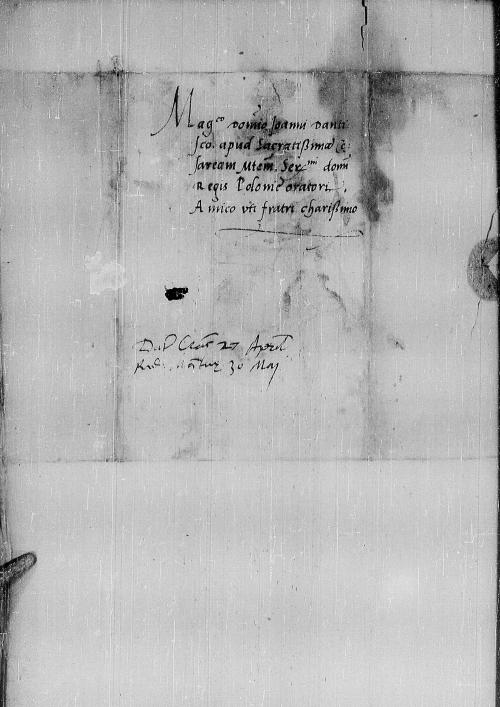 Mag^co domino Joanni Danti
sco apud Sacratißimā Ce
saream Mtem. Ser^mi domi
Regis Polonię oratori.
Amico uti fratri charißimo
27 April
30 Maij